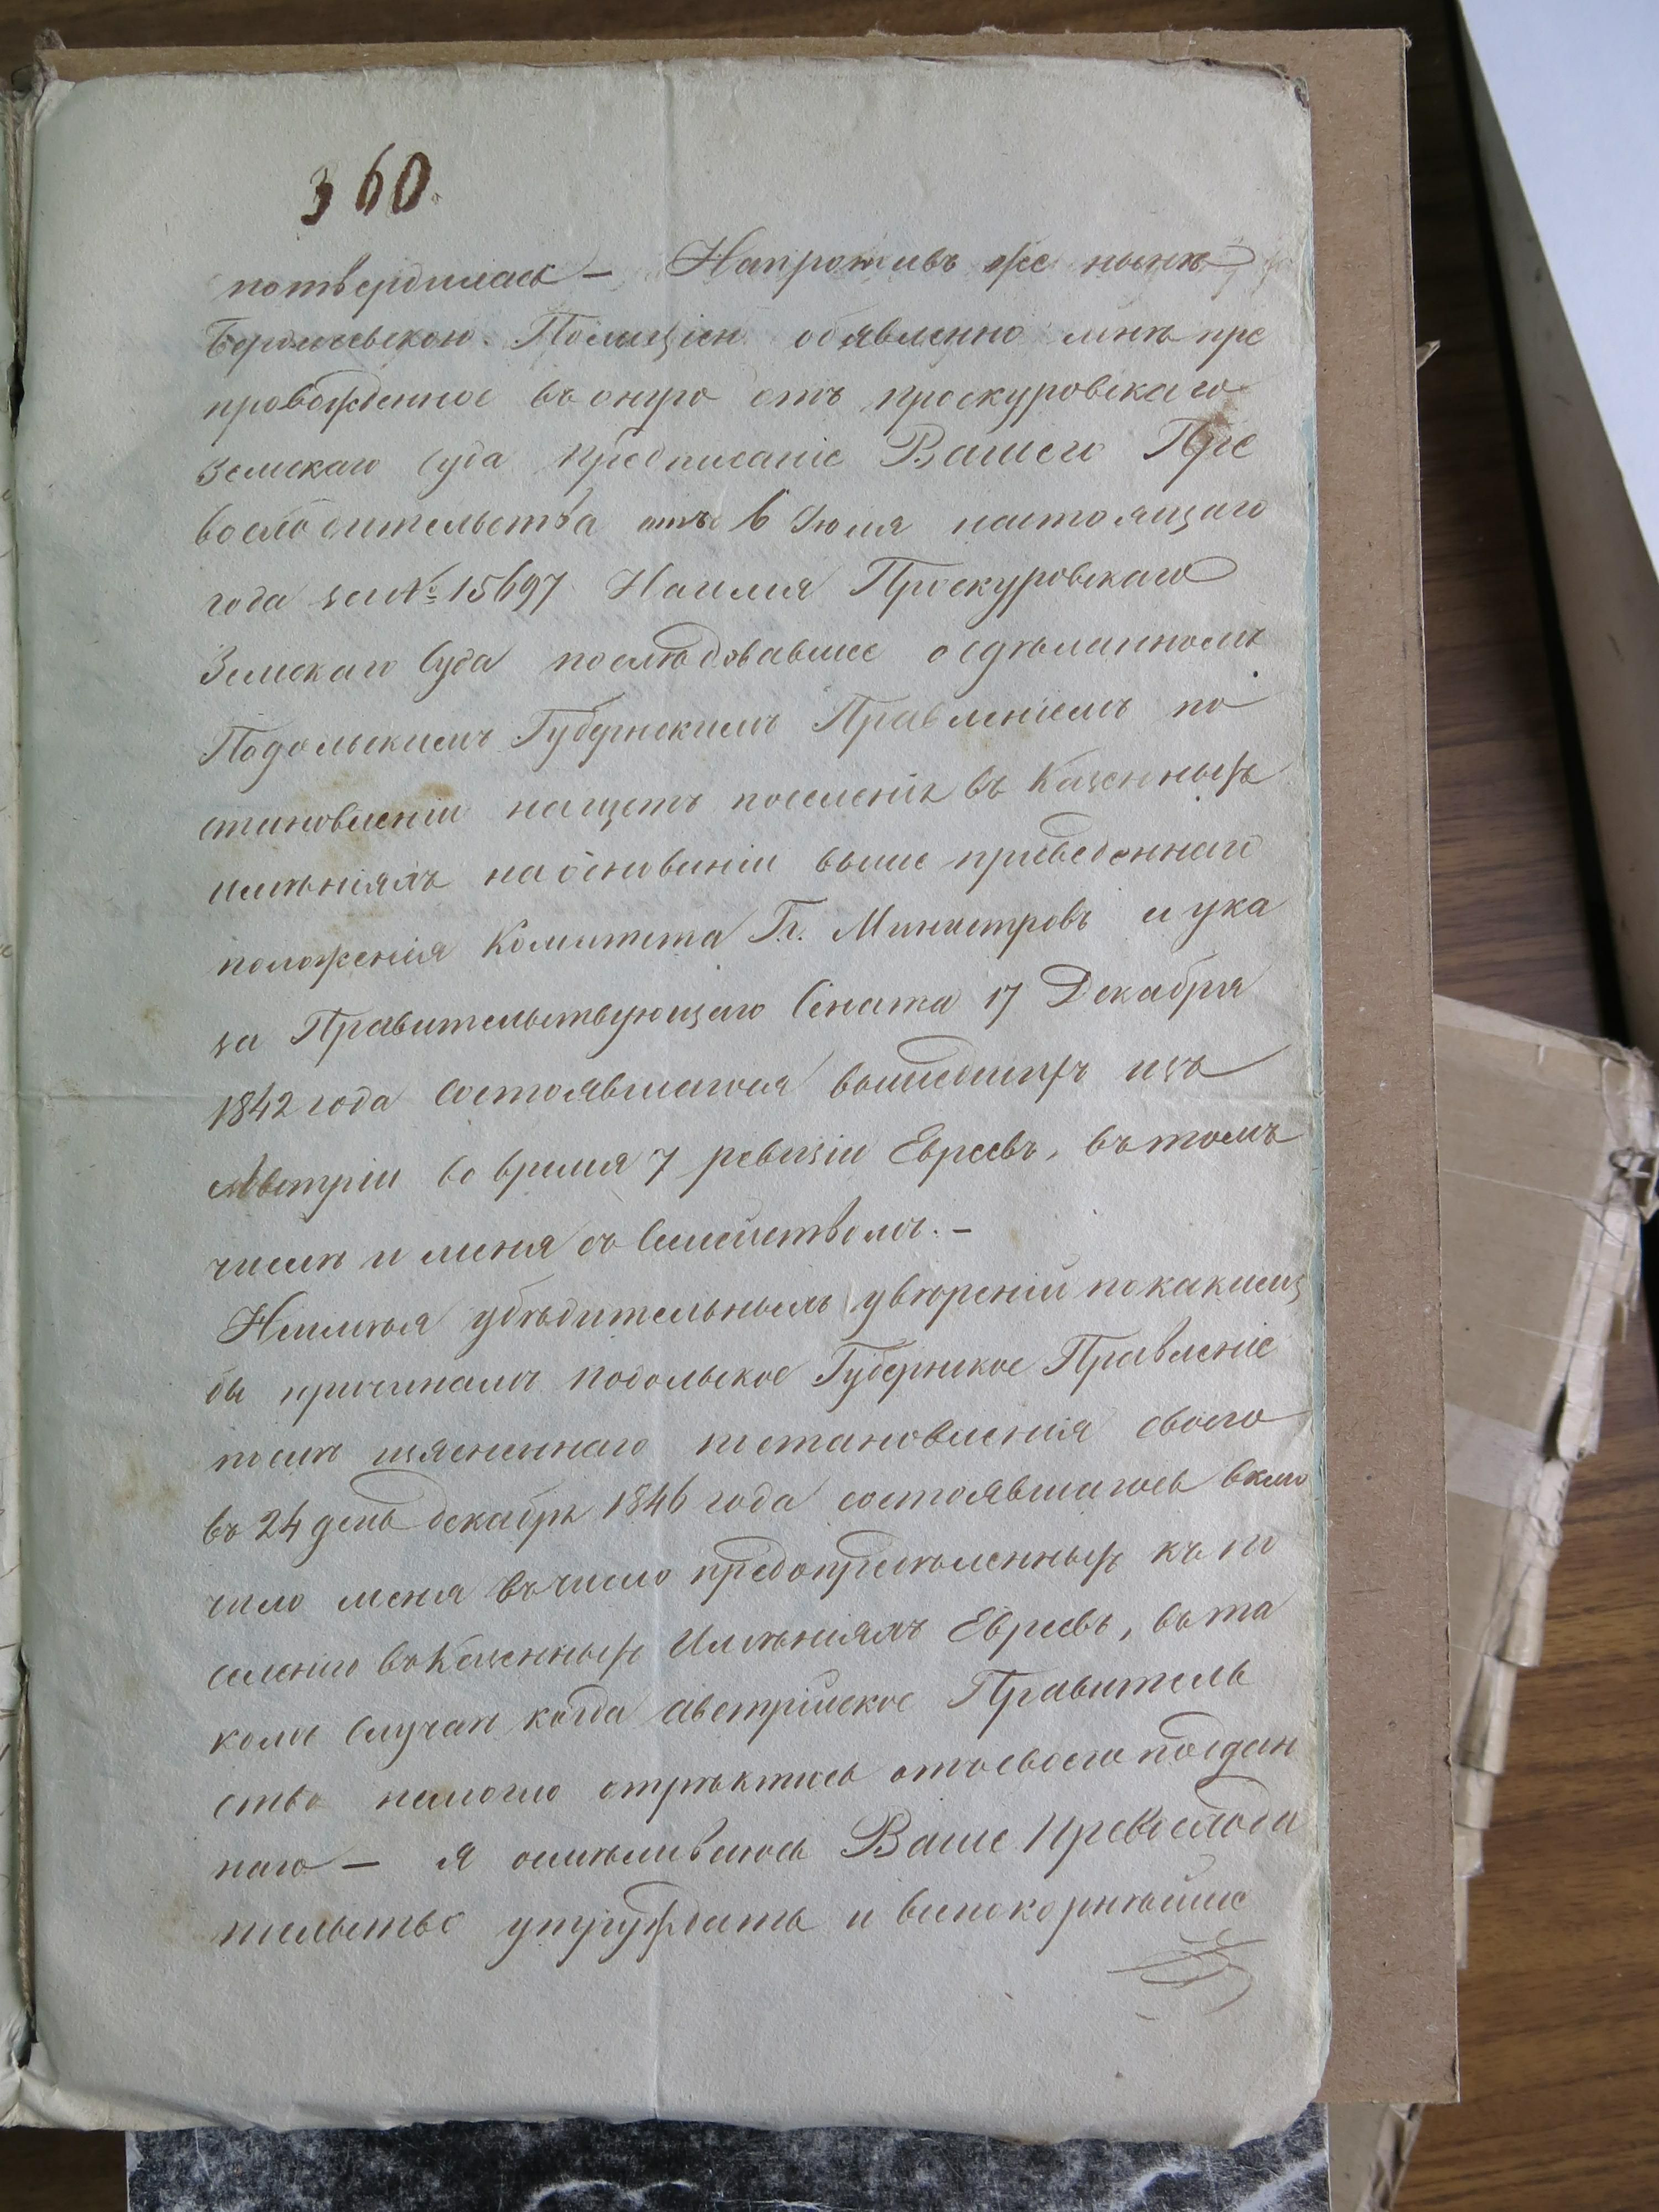 360.
потвердилась – Напротивъ же нынѣ
Бердичевскою Полиціею объявленно мнѣ пре
провожденное въ оную отъ проскуровскаго
земскаго Суда предписаніе Вашего Пре
восходительства отъ 6 Іюля настоящаго
года за № 15697 На имя Проскуровскаго
Земскаго Суда послѣдовавшее о сдѣланномъ
Подольскимъ Губернскимъ Правленіемъ по
становленіи на щетъ поселенія въ Казенныхъ
имѣніяхъ на основаніи выше приведеннаго
положенія Комитета Гг. Министровъ и ука
за Правительствующаго Сената 17 Декабря
1842 года состоявшагося вышедшихъ изъ
Австріи во время 7 ревизіи Евреевъ, въ томъ
числѣ и меня съ Семействомъ. –
Неимѣя убѣдительныхъ увѣреній по какимъ
бы причинамъ подольское Губернское Правленіе
послѣ изясненнаго постановленія своего
въ 24 день декабря 1846 года состоявшагось вклю
чило меня въ число предопредѣленныхъ къ по
селенію въ Казенныхъ Имѣніяхъ Евреевъ, въ та
комъ Случаѣ когда австрійское Правитель
ство немогло отрѣктись отъ своего поддан
наго – я осмѣливаюсь Ваше Превосходи
тельство утруждать и всепокорнѣйше